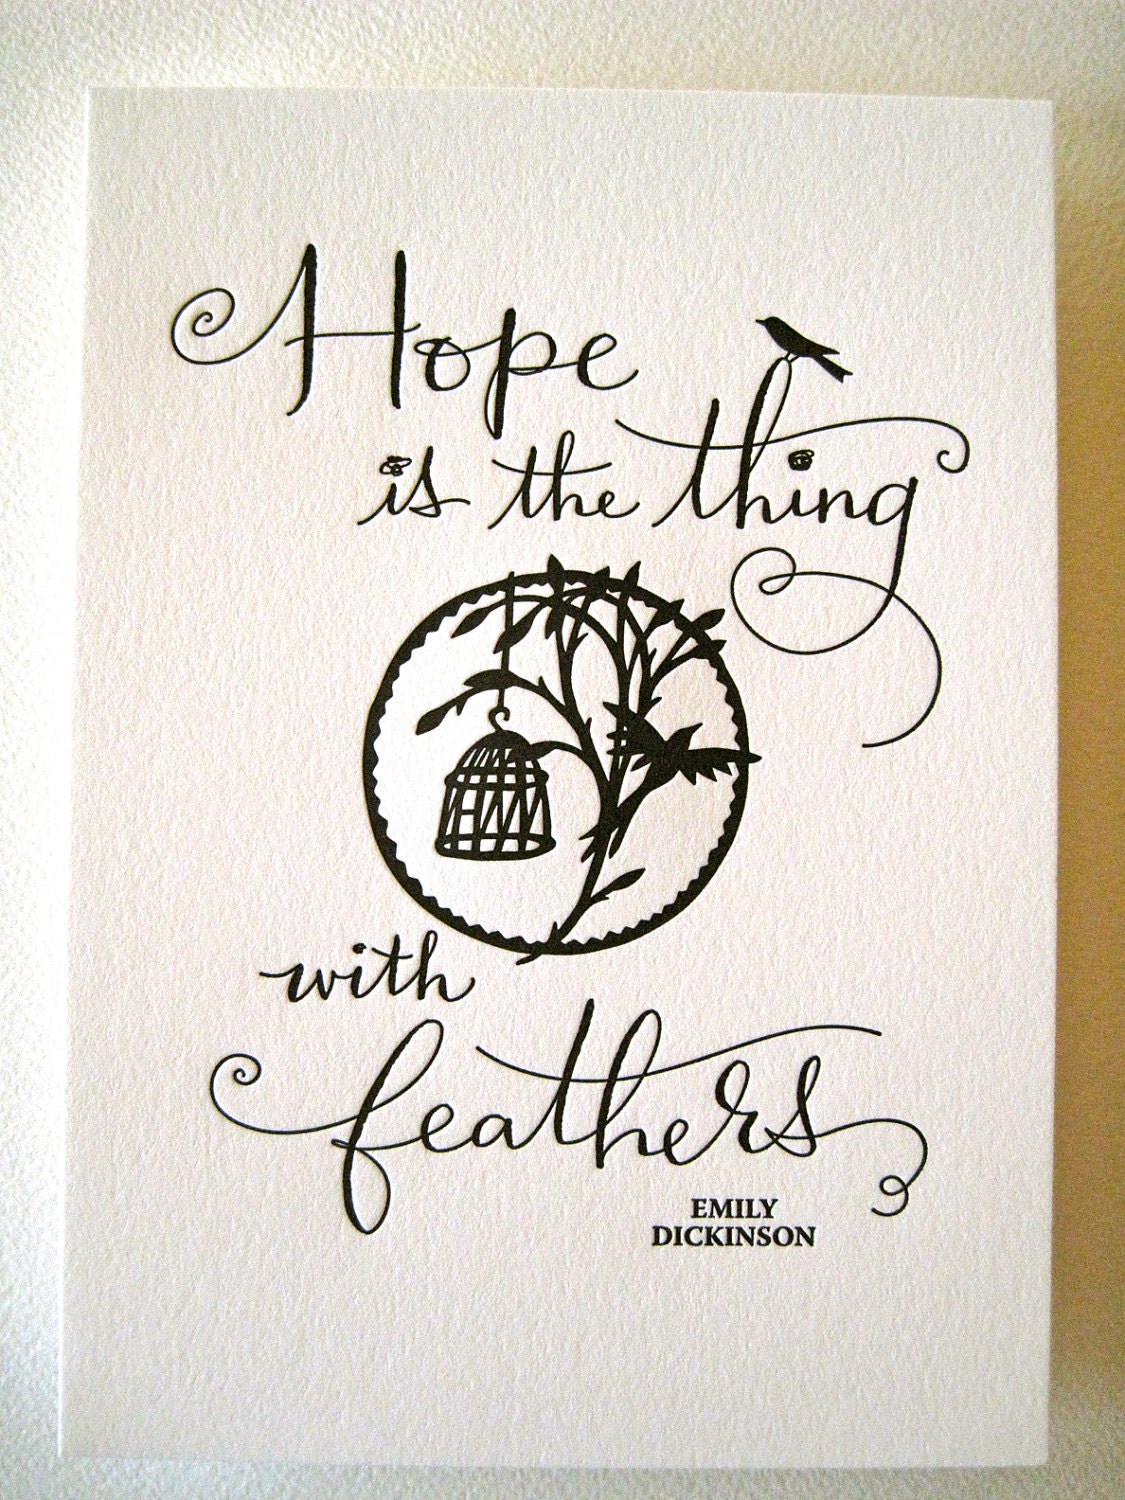 Hope
is the thing
with
feathers
EMILY
DICKINSON